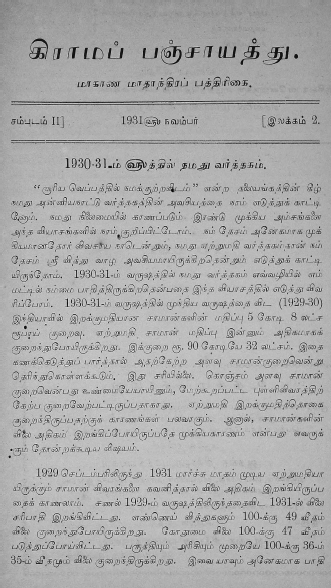 கிராமப் பஞ்சாயத்து.
மாகாண மாதாந்திரப் பத்திரிகை.
சம்புடம் II] 1931௵ நவம்பர் [இலக்கம் 2.
1930-31-ம் ௵த்தில் நமது வர்த்தகம்.
“ஸூரிய வெப்பத்தில் நமக்குற்ற இடம்” என்ற தலையங்கத்தின் கீழ்
நமது அன்னியநாட்டு வர்த்தகத்தின் அவசியத்தை நாம் எடுத்துக் காட்டி
னோம். நமது நிலைமையில் காணப்படும் இரண்டு முக்கிய அம்சங்களை
அந்த வியாசங்களில் நாம் குறிப்பிட்டோம். நம் தேசம் அனேகமாக முக்
கியமானதோர் விவசாய நாடென்றும், நமது ஏற்றுமதி வர்த்தகம்தான் நம்
தேசம் ஸ்திரித்து வாழ அவசியமாயிருக்கிறதென்றும் எடுத்துக் காட்டி
யிருந்தோம். 1930-31-ம் வருஷத்தில் நமது வர்த்தகம் எவ்வழியில் எம்
மட்டில் நம்மை பாதித்திருக்கிறதென்பதை இந்த வியாசத்தில் எடுத்து விவ
ரிப்போம். 1930-31-ம் வருஷத்தில் முந்திய வருஷத்தை விட (1929-30)
இந்தியாவில் இறக்குமதியான சாமான்களின் மதிப்பு 5 கோடி 8 லட்ச
ரூபாய் குறைவு. ஏற்றுமதி சாமான் மதிப்பு இன்னும் அதிகமாகக்
குறைந்துபோயிருக்கிறது. இக்குறை ரூ. 90 கோடியே 32 லட்சம். இதை
கணக்கெடுத்துப் பார்த்தால் அதற்கேற்ற அளவு சாமான்குறைவென்று
தெரிந்துகொள்ளக்கூடும். இது சரியில்லை. கொஞ்சம் அளவு சாமான்
குறைவென்பது உண்மையேயாயினும், மேற்கூறப்பட்ட புள்ளிவிவரத்திற்
கேற்ப குறைவேற்பட்டிருப்பதாகாது. ஏற்றுமதி இறக்குமதித்தொகை
குறைந்திருப்பதற்குக் காரணங்கள் பலவாகும். ஆனால், சாமான்களின்
விலை அதிகம் இறங்கிப்போயிருப்பதே முக்கியகாரணம் என்பது எவருக்
கும் தோன்றக்கூடிய விஷயம்.
1929 செப்டம்பரிலிருந்து 1931 மார்ச்சு மாதம் முடிய ஏற்றுமதியா
யிருக்கும் சாமான் விவரங்களை கவனித்தால் விலை அதிகம் இறங்கியிருப்ப
தைக் காணலாம். சணல் 1929-ம் வருஷத்திலிருந்ததைவிட 1931-ல் விலை
சரிபாதி இறங்கிவிட்டது. எண்ணெய் வித்துகளும் 100-க்கு 49 வீதம்
விலை குறைந்துபோயிற்று. கோதுமை விலை 100-க்கு 47 வீதம்
படுத்துப்போய்விட்டது. பருத்தியும் அரிசியும் முறையே 100-க்கு 36-ம்
35-ம் வீதமும் விலை குறைந்திருக்கிறது. இவை யாவும் அனேகமாக பாதி